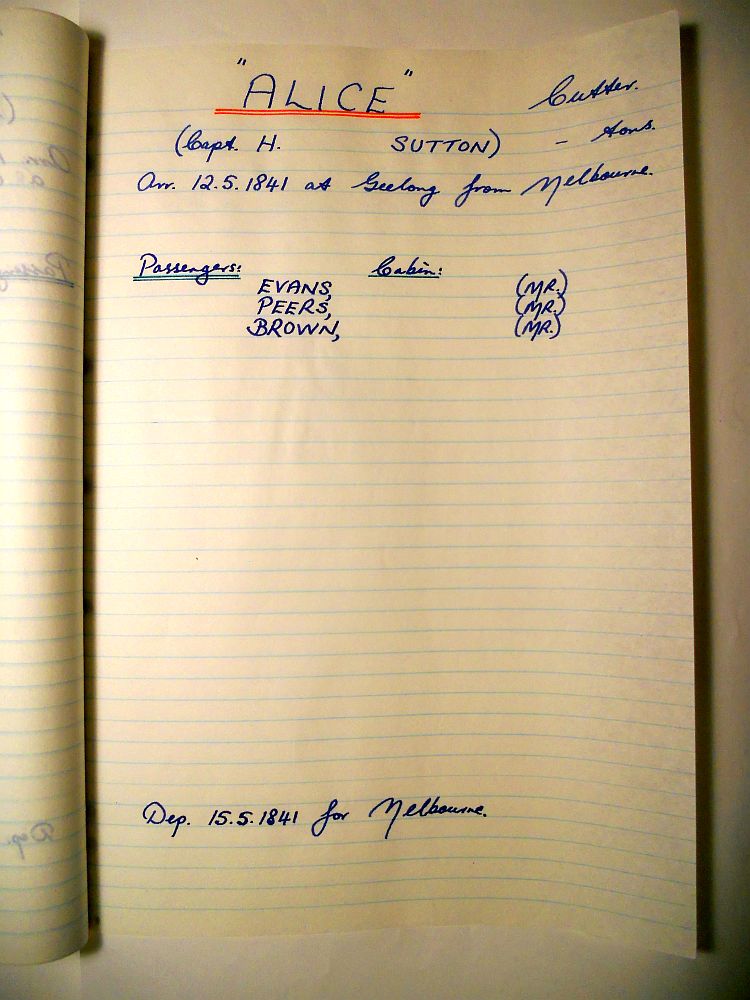 "ALICE" Cutter.
(Capt. H. SUTTON) - tons.
Arr. 12.5.1841 at Geelong from Melbourne.
Passengers: Cabin:
EVANS, (MR.)
PEERS, (MR.)
BROWN, (MR.)
Dep. 15.5.1841 for Melbourne.